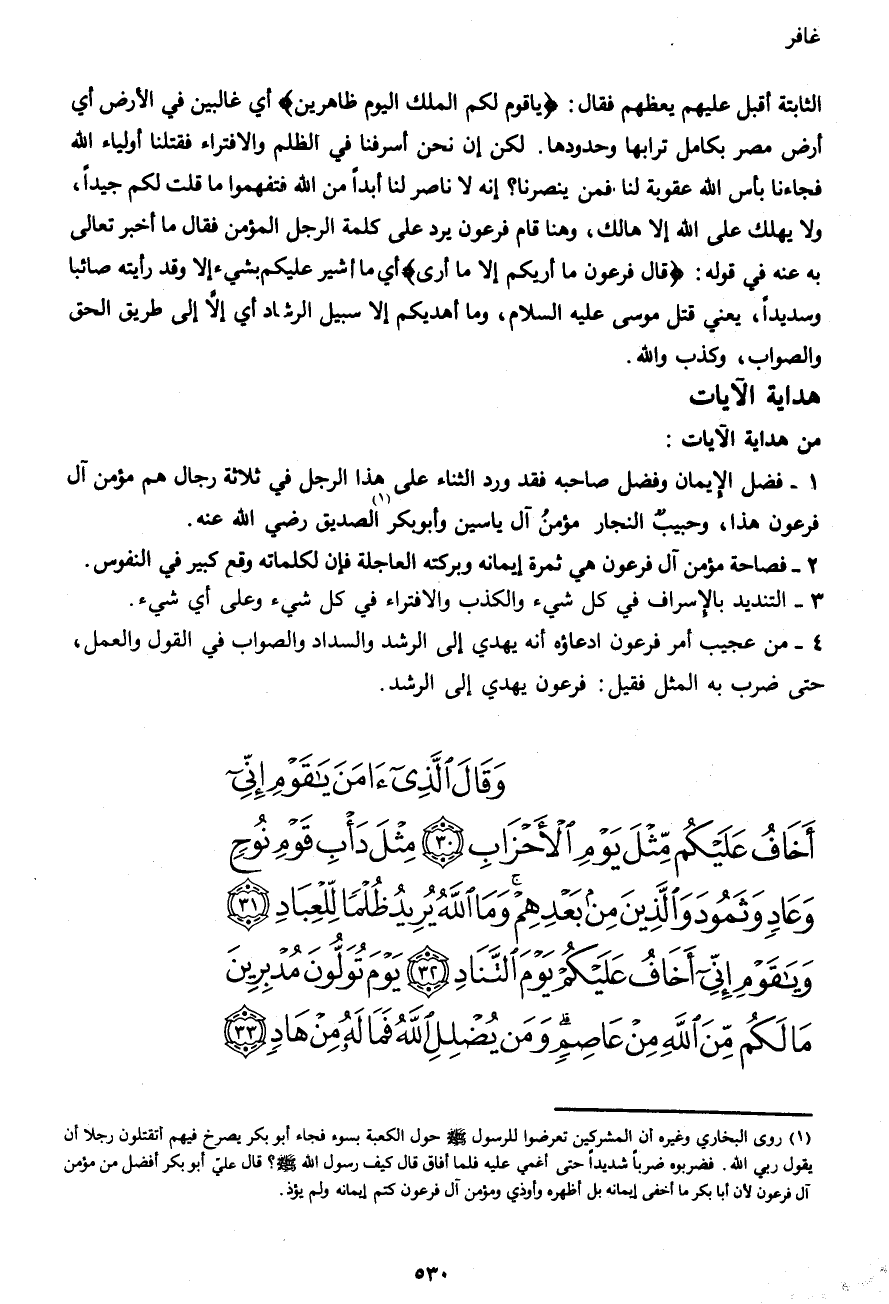 غافر
الثابتة أقبل عليهم يعظهم فقال: ﴿ياقوم لكم الملك اليوم ظاهرين﴾ أي غالبين في الأرض أي
أرض مصر بكامل ترابها وحدودها. لكن إن نحن أسرفنا في الظلم والافتراء فقتلنا أولياء الله
فجاءنا بأس الله عقوبة لنا فمن ينصرنا؟ إنه لا ناصر لنا أبداً من الله فتفهموا ما قلت لكم جيداً،
ولا يهلك على الله إلا هالك، وهنا قام فرعون يرد على كلمة الرجل المؤمن فقال ما أخبر تعالى
به عنه في قوله: ﴿قال فرعون ما أريكم إلا ما أرى﴾ أي ما أشير عليكم بشيء إلا وقد رأيته صائبا
وسديداً، يعني قتل موسى عليه السلام، وما أهديكم إلا سبيل الرشاد أي إلَّا إلى طريق الحق
والصواب، وكذب والله.
هداية الآيات
من هداية الآيات :
١ ـ فضل الإيمان وفضل صاحبه فقد ورد الثناء على هذا الرجل في ثلاثة رجال هم مؤمن آل
فرعون هذا، وحبيبٌ النجار مؤمنُ آل ياسين وأبوبكر(١) الصديق رضي الله عنه.
٢ ـ فصاحة مؤمن آل فرعون هي ثمرة إيمانه وبركته العاجلة فإن لكلماته وقع كبير في النفوس.
٣ ـ التنديد بالإسراف في كل شيء والكذب والافتراء في كل شيء وعلى أي شيء.
٤ ـ من عجيب أمر فرعون ادعاؤه أنه يهدي إلى الرشد والسداد والصواب في القول والعمل،
حتى ضرب به المثل فقيل: فرعون يهدي إلى الرشد.
وَقَالَ ٱلَّذِىٓ ءَامَنَ يَٰقَوْمِ إِنِّىٓ
أَخَافُ عَلَيْكُم مِّثْلَ يَوْمِ ٱلْأَحْزَابِ ٣٠ مِثْلَ دَأْبِ قَوْمِ نُوحٍ
وَعَادٍ وَثَمُودَ وَٱلَّذِينَ مِنۢ بَعْدِهِمْ ۚ وَمَا ٱللَّهُ يُرِيدُ ظُلْمًا لِّلْعِبَادِ ٣١
وَيَٰقَوْمِ إِنِّىٓ أَخَافُ عَلَيْكُمْ يَوْمَ ٱلتَّنَادِ ٣٢ يَوْمَ تُوَلُّونَ مُدْبِرِينَ
مَا لَكُم مِّنَ ٱللَّهِ مِنْ عَاصِمٍ ۗ وَمَن يُضْلِلِ ٱللَّهُ فَمَا لَهُۥ مِنْ هَادٍ ٣٣
(١) روى البخاري وغيره أن المشركين تعرضوا للرسول ﷺ حول الكعبة بسوء فجاء أبو بكر يصرخ فيهم أتقتلون رجلا أن
يقول ربي الله. فضربوه ضرباً شديداً حتى أغمي عليه فلما أفاق قال كيف رسول الله ﷺ؟ قال عليّ أبو بكر أفضل من مؤمن
آل فرعون لأن أبا بكر ما أخفى إيمانه بل أظهره وأوذي ومؤمن آل فرعون كتم إيمانه ولم يؤذ.
٥٣٠